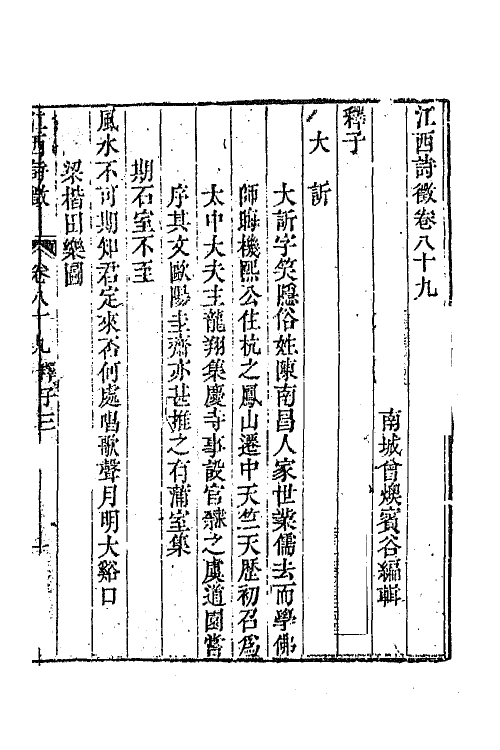 江西詩徵卷八十九
南城曾燠賓谷編輯
釋子
大訢
大訢字笑隱俗姓陳南昌人家世業儒去而學佛
師晦機熙公住杭之鳳山遷中天竺天歷初召為
太中大夫主龍翔集慶寺事設官隸之虞道園嘗
序其文歐陽圭齋亦甚推之有蒲室集
期石室不至
風水不可期知君定來否何處唱歌聲月明大谿口
梁楷田樂圖
江西詩徵 卷八十九 釋子三